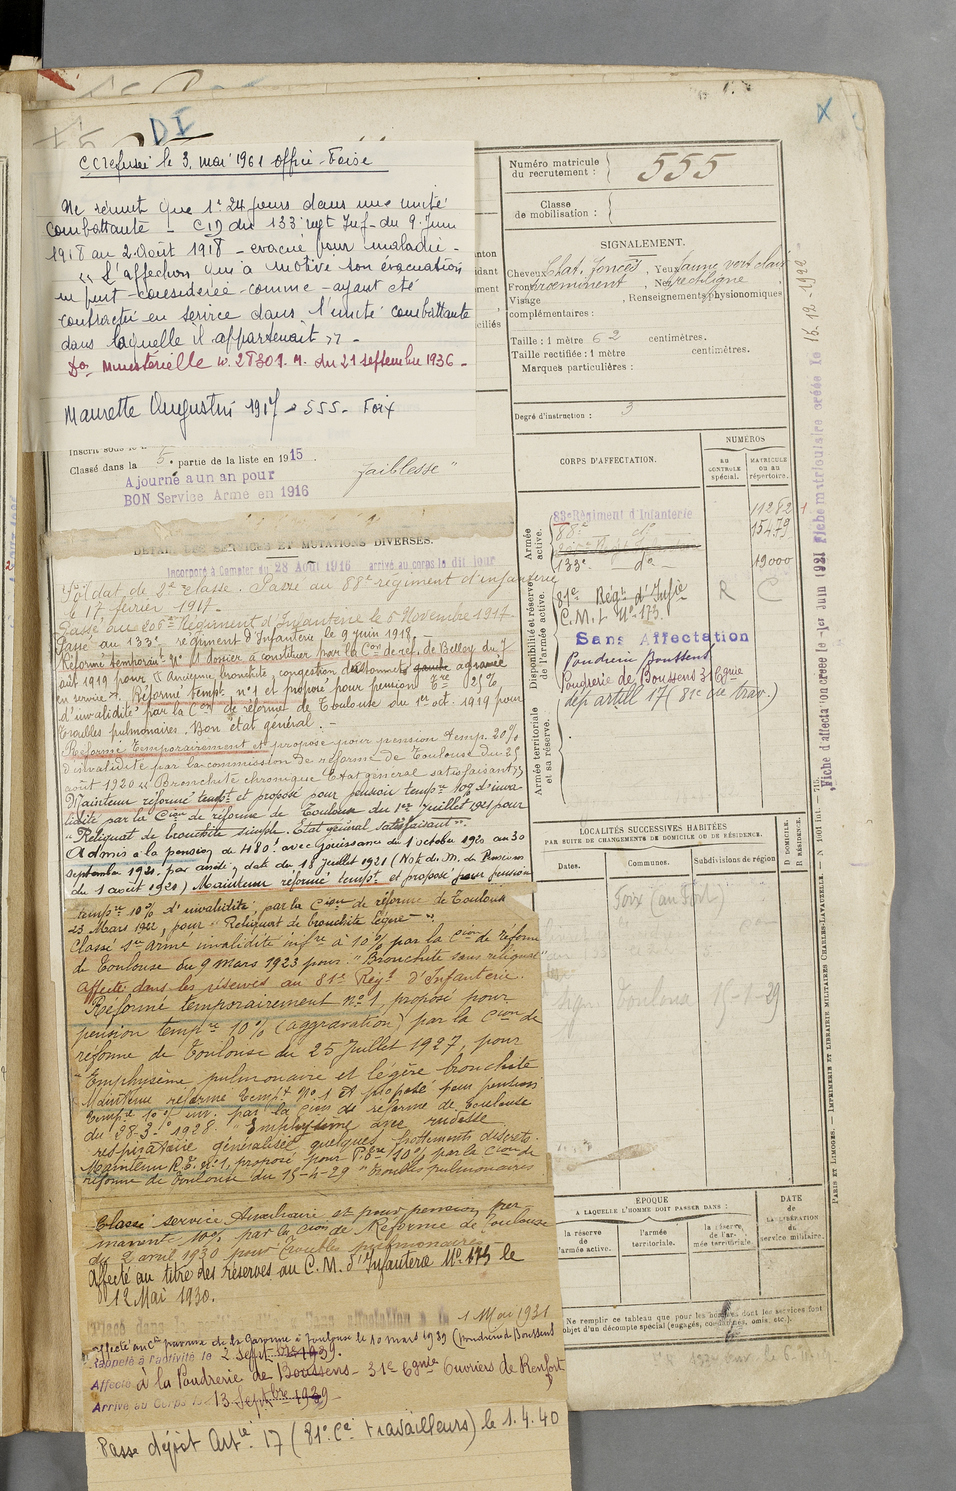 DI
CC refusée le 3. mai 1961 office - Foix
Ne réunit que 1m 24 jours dans une unité
combattante - CID du 133e regt Inf - du 9. Juin
1918 au 2. Août 1918 - evacué pour maladie -
"L'affection qui a motivé son évacuation
ne peut - considérée - comme - ayant été
contracté en service dans l'unité combattante
dans laquelle il appartenait" -
Don Ministérielle no. 28309. M. du 21 septembre 1936 -
Maurette Augustin 1917 - 555 - Foix
Classé dans la 5e partie de la liste en 1915
Ajourné a un an pour
faiblesse"
BON Service Armé en 1916
DÉTAIL DES SERVICES ET MUTATIONS DIVERSES.
Incorporé à Compter du 28 Août 1916 arrivé au corps le dit jour
Soldat de 2e classe. Passé au 88e régiment d'infanterie
le 17 février 1917 -
Passé au 206e Régiment d'Infanterie le 5 Novembre 1917
Passé au 133e régiment d'Infanterie le 9 juin 1918. -
Réformé temporairt No 1 dossier à constituer par la Con de réf. de Belley du 7
août 1919 pour ancienne bronchite congestion gauche aggravée
en service". Réformé tempre no 1 et proposé pour pension Tre 25%
d'invalidité par la Con de réforme de Toulouse du 1er oct. 1919 pour
troubles pulmonaires. Bon état général. -
Réformé temporairement et proposé pour pension temp. 20%
d'invalidité par la commission de réforme de Toulouse du 25
août 1920 "Bronchite chronique Etat général satisfaisant"
Maintenu réformé tempt et proposé pour pension tempre 10% d'inva-
lidité par la Cion de réforme de Toulouse du 1er Juillet 1921 pour
"Reliquat de bronchite simple. Etat général satisfaisant".
Admis à la pension de 480. avec jouissance du 1 octobre 1920 au 30
septembre 1921. par arrêté, date du 18 juillet 1921 (Not. du M. des Pensions
du 1 août 1921) Maintenu réformé tempt et proposé pour pension
tempre 10% d'invalidité, par la Cion de réforme de Toulouse
23 Mars 1922, pour "Reliquat de bronchite légère".
Classé Sce armé invalidité infre à 10% par la Cion de réforme
de Toulouse du 9 Mars 1923 pour : "Bronchite sans reliquat"
Affecté dans les réserves au 81e Régt d'Infanterie.
Réformé temporairement no 1, proposé pour
pension tempre 10% (aggravation) par la Cion de
réforme de Toulouse du 25 Juillet 1927, pour
"Emphysème pulmonaire et légère bronchite
Maintenu réformé tempt No 1 et proposé pour pension
tempre 10% inv. par la Cion de réforme de Toulouse
du 28-3-1928. "Emphysème avec rudesse
respiratoire généralisée quelques frottements discrets.
Maintenu R.T. No 1, proposé pour P. Tre 10% par la Cion de
réforme de Toulouse du 15-4-29 "Troubles pulmonaires
Classé service Auxiliaire et pour pension per
manente 10% par la Cion de Réforme de Toulouse
du 2 avril 1930 pour troubles pulmonaires
Affecté au titre des réserves au C. M. d'Infanterie No 173 le
12 Mai 1930.
Sans affectation le 1 Mai 1931
Affecté au Cre de la Garonne à Toulouse le 10 mars 1939 (Poudrerie de Boussens
Rappelé à l'activité le 2 sept. 1939.
Affecté à la Poudrerie de Boussens - 31e Cgnie Ouvriers de Renfort
Arrivé au Corps le 13 Septbre 1939 -
Passe dépôt Artie 17 (81e Cie travailleurs) le 1.4.40
Numéro matricule
du recrutement :
555
Classe
de mobilisation :
SIGNALEMENT.
Cheveux Chat. foncés, Yeux jaune vert clair
Front proéminent, Nez rectiligne
Visage , Renseignements physionomiques
complémentaires :
Taille : 1 mètre 62 centimètres.
Taille rectifiée : 1 mètre centimètres.
Marques particulières :
Degré d'instruction : 3
CORPS D'AFFECTATION.
NUMÉROS
AU CONTROLE spécial.
MATRICULE ou au répertoire.
Armée active.
83e Régiment d'Infanterie 11282
88e do 15479
133e do 19000
Disponibilité et réserve de l'armée active.
81e Régt d'Infie R C
C. M. I. No 173.
Sans Affectation
Poudrerie Boussens
Poudrerie de Boussens 31 Cgnie
dép artill 17 (81e Cie trav.)
Armée territoriale et sa réserve.
LOCALITÉS SUCCESSIVES HABITÉES
PAR SUITE DE CHANGEMENTS DE DOMICILE OU DE RÉSIDENCE.
D DOMICILE.
R RÉSIDENCE.
Dates.
Communes.
Subdivisions de région
Foix (au Fort)
Toulouse 15-1-29
ÉPOQUE
A LAQUELLE L'HOMME DOIT PASSER DANS :
la réserve de l'armée active.
l'armée territoriale.
la réserve de l'armée territoriale.
DATE de la LIBÉRATION du service militaire.
Ne remplir ce tableau que pour les hommes dont les services font
objet d'un décompte spécial (engagés, condamnés, omis, etc.).
Fiche d'affectation créée le 1er Juin 1921 Fiche matriculaire créée le 16-12-1922
PARIS ET LIMOGES. — IMPRIMERIE ET LIBRAIRIE MILITAIRES CHARLES-LAVAUZELLE. — N° 1001 Int. — 715.